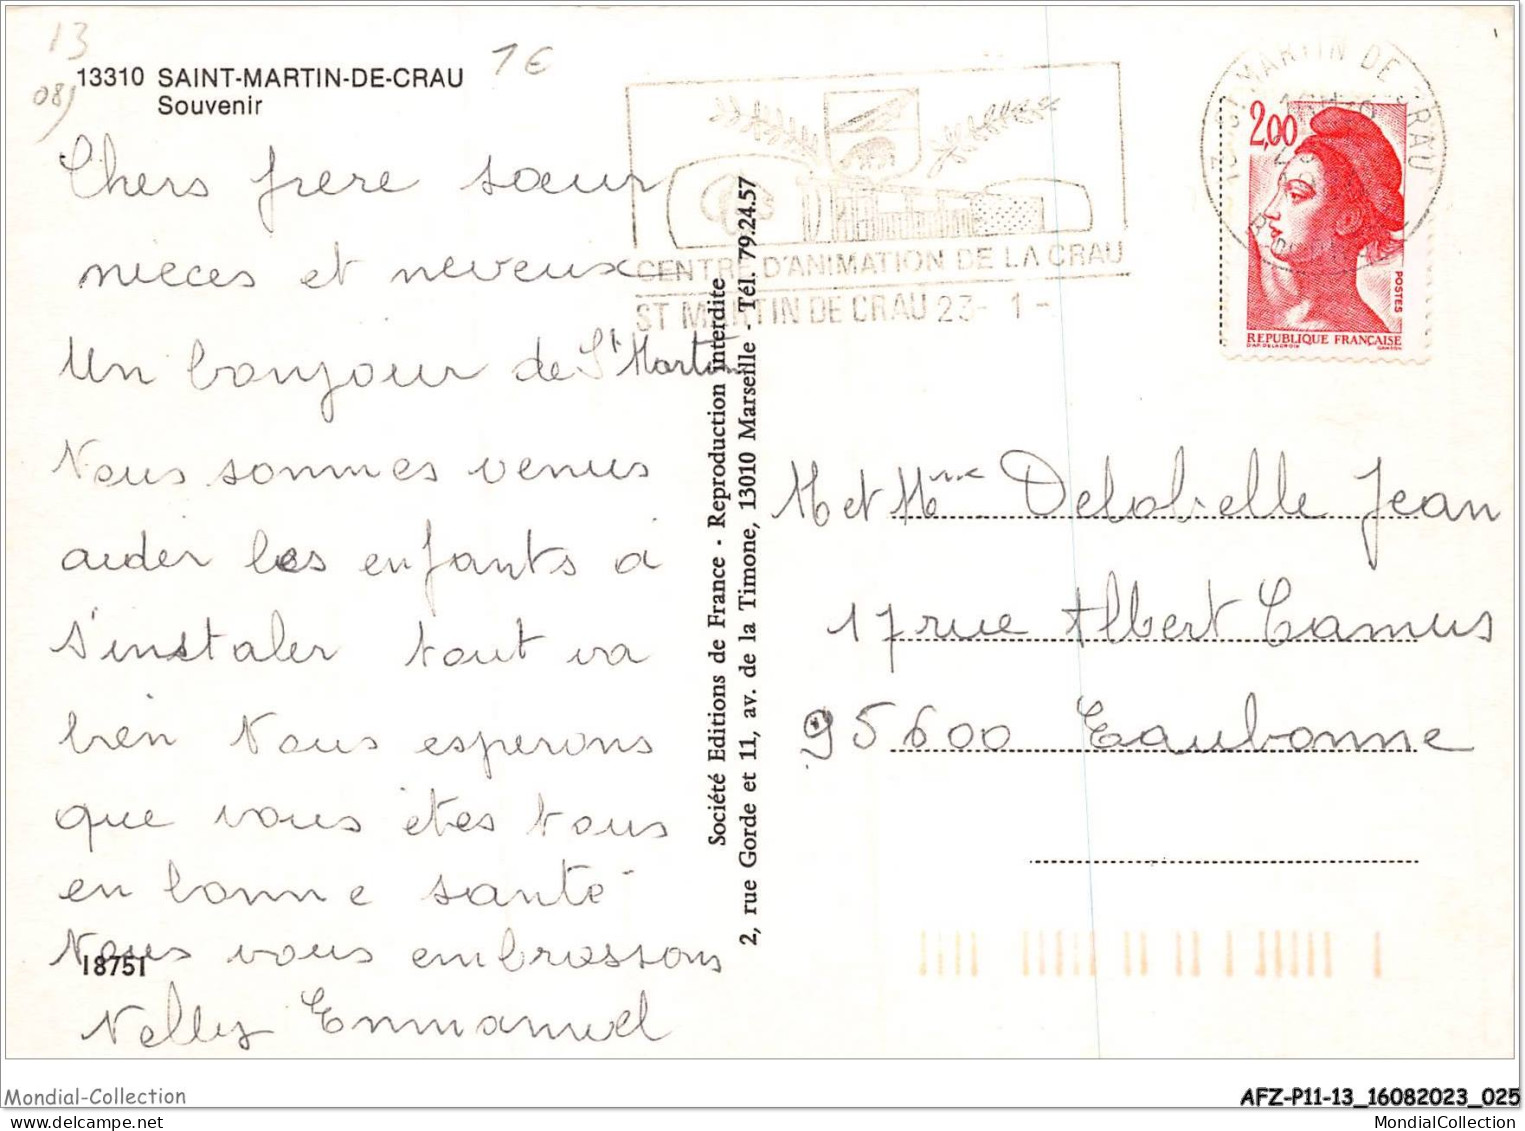 13
08)
1€
13310 SAINT-MARTIN-DE-CRAU
Souvenir
Chers frere sœur
nieces et neveux
Un bonjour de St Martin
Nous sommes venus
aider les enfants a
s'instaler tout va
bien Nous esperons
que vous êtes tous
en bonne santé
Nous vous embrassons
18751
Nelly Emmanuel
Société Editions de France - Reproduction interdite
2, rue Gorde et 11, av. de la Timone, 13010 Marseille - Tél. 79.24.57
CENTRE D'ANIMATION DE LA CRAU
ST MARTIN DE CRAU 23- 1 -
13 ST MARTIN DE CRAU
2,00
POSTES
REPUBLIQUE FRANÇAISE
D'AP. DELACROIX GANDON
M et Mme Delobelle Jean
17 rue Albert Camus
95600 Eaubonne
Mondial-Collection
AFZ-P11-13_16082023_025
MondialCollection